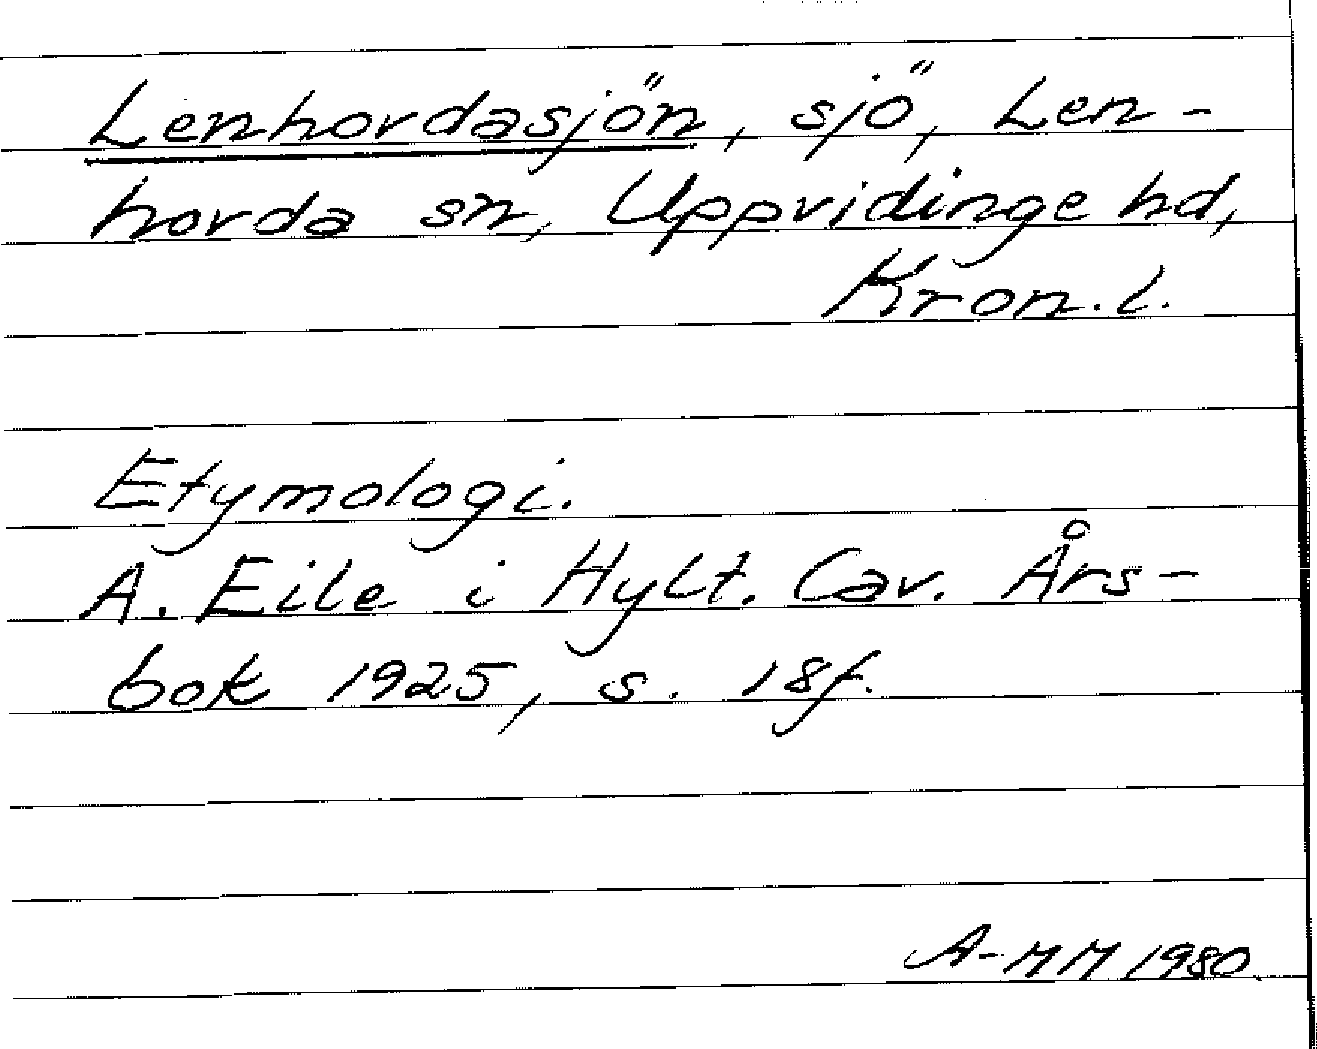 Lenhordasjön, sjö, Len-
horda sn, Uppvidinge hd,
Kron. l.
Etymologi.
A. Eile i Hylt. Cav. Års-
bok 1925, s. 18f.
A-MM 1980.